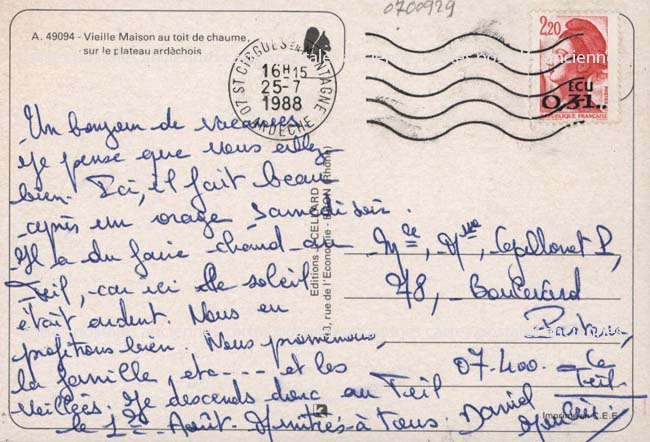 0700929
A. 49094 - Vieille Maison au toit de chaume,
sur le plateau ardèchois
07 ST CIRGUES EN MONTAGNE
16H15
25-7
1988
ARDECHE
2,20
ECU
0,31..
REPUBLIQUE FRANÇAISE
Un bonjour de vacances,
je pense que vous allez
bien. Ici, il fait beau
après un orage samedi soir.
Il a du faire chaud au
Teil, car ici le soleil
était ardent. Nous en
profitons bien. Nous promenons,
la famille, etc---- et les
veillées. Je descends donc au Teil
le 1er Août. Amitiés à tous. Daniel
Editions
13, rue de l'Economie - (Rhône)
Mle, Mme,
78, Boulevard
07.400. Le
Teil
Imprimeur C.E.E.